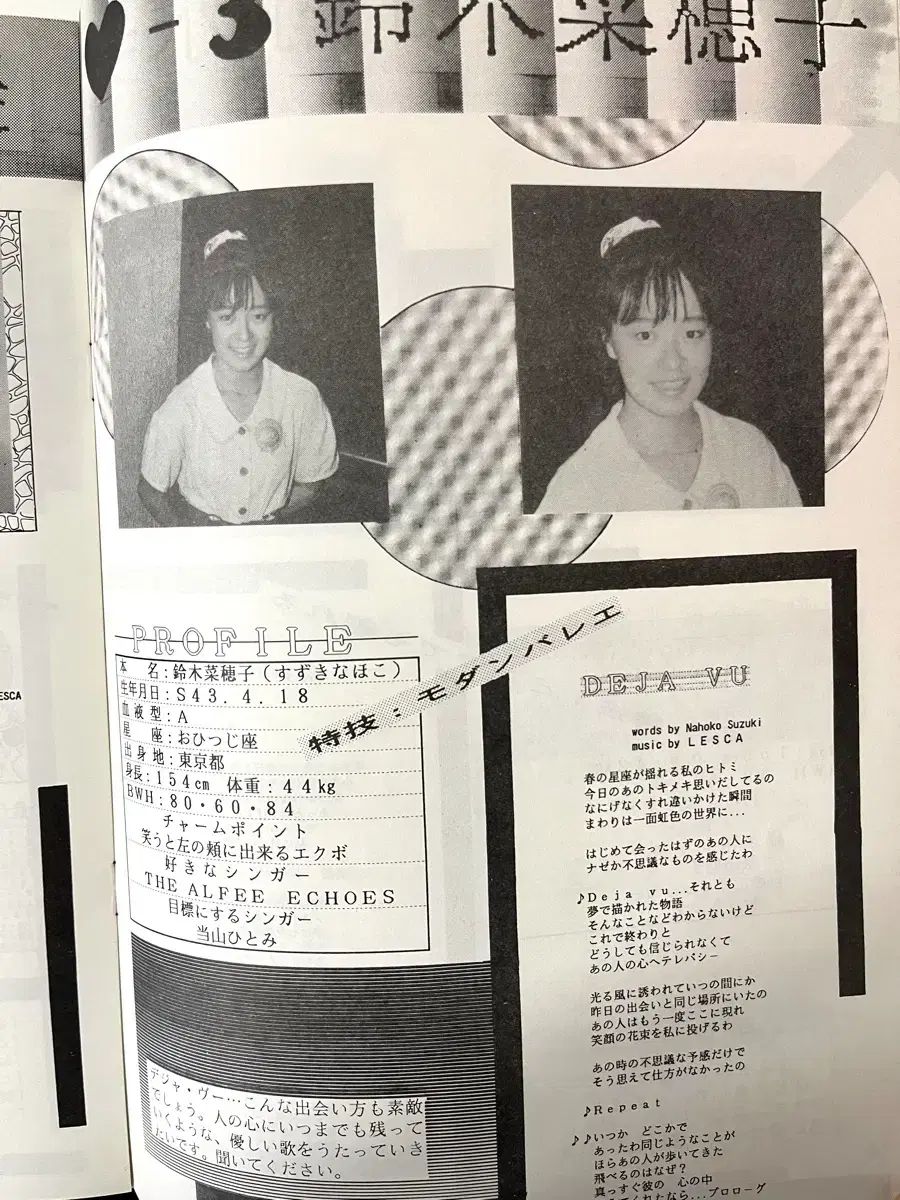 ♥-3 鈴木菜穂子
PROFILE
本名:鈴木菜穂子(すずきなほこ)
生年月日:S43.4.18
血液型:A
星座:おひつじ座
出身地:東京都
身長:154cm 体重:44kg
BWH:80・60・84
チャームポイント
笑うと左の頬に出来るエクボ
好きなシンガー
THE ALFEE ECHOES
目標にするシンガー
当山ひとみ
特技:モダンバレエ
デジャ・ヴー…こんな出会い方も素敵
でしょう。人の心にいつまでも残って
いくような、優しい歌をうたっていき
たいです。聞いてください。
DEJA VU
words by Nahoko Suzuki
music by LESCA
春の星座が揺れる私のヒトミ
今日のあのトキメキ思いだしてるの
なにげなくすれ違いかけた瞬間
まわりは一面虹色の世界に...
はじめて会ったはずのあの人に
ナゼか不思議なものを感じたわ
♪Deja vu...それとも
夢で描かれた物語
そんなことなどわからないけど
これで終わりと
どうしても信じられなくて
あの人の心へテレパシー
光る風に誘われていつの間にか
昨日の出会いと同じ場所にいたの
あの人はもう一度ここに現れ
笑顔の花束を私に投げるわ
あの時の不思議な予感だけで
そう思えて仕方がなかったの
♪Repeat
♪♪いつか どこかで
あったわ同じようなことが
ほらあの人が歩いてきた
飛べるのはなぜ?
真っすぐ彼の 心の中
くれたなら...プロローグ
ESCA